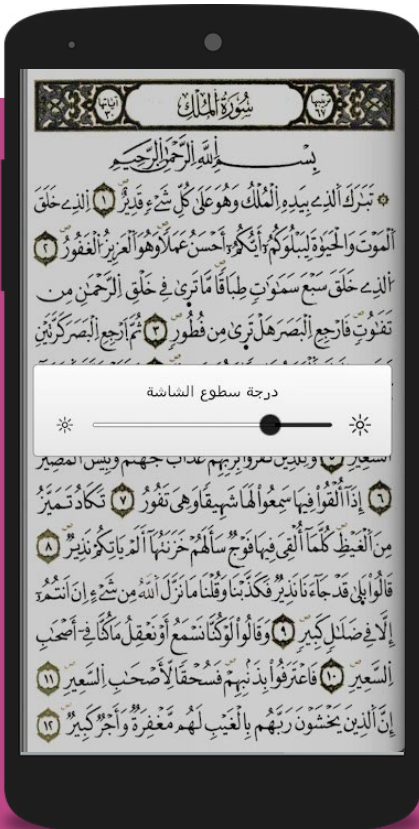 ترتيبها ٦٧ سُورَةُ الْمُلْكِ آياتها ٣٠
بِسْمِ اِللَّهِ اِلرَّحْمَٰنِ اِلرَّحِيمِ
۞ تَبَٰرَكَ اَلذِے بِيَدِهِ اِلْمُلْكُ وَهُوَ عَلَىٰ كُلِّ شَےْءٖ قَدِيرٌ ١ اِلذِے خَلَقَ
اَلْمَوْتَ وَالْحَيَوٰةَ لِيَبْلُوَكُمُۥٓ أَيُّكُمُۥٓ أَحْسَنُ عَمَلٗا وَهُوَ اَلْعَزِيزُ اُلْغَفُورُ ٢
اُلذِے خَلَقَ سَبْعَ سَمَٰوَٰتٖ طِبَاقٗا مَّا تَرَىٰ فِے خَلْقِ اِلرَّحْمَٰنِ مِن
تَفَٰوُتٖ فَارْجِعِ اِلْبَصَرَ هَلْ تَرَىٰ مِن فُطُورٖ ٣ ثُمَّ اَرْجِعِ اِلْبَصَرَ كَرَّتَيْنِ
درجة سطوع الشاشة
اَلسَّعِيرِ ٥ وَلِلذِينَ كَفَرُواْ بِرَبِّهِمْ عَذَابُ جَهَنَّمَ وَبِيسَ اَلْمَصِيرُ
٦ إِذَآ أُلْقُواْ فِيهَا سَمِعُواْ لَهَا شَهِيقٗا وَهِيَ تَفُورُ ٧ تَكَادُ تَمَيَّزُ
مِنَ اَلْغَيْظِ كُلَّمَآ أُلْقِيَ فِيهَا فَوْجٞ سَأَلَهُمْ خَزَنَتُهَآ أَلَمْ يَاتِكُمْ نَذِيرٞ ٨
قَالُواْ بَلَىٰ قَدْ جَآءَنَا نَذِيرٞ فَكَذَّبْنَا وَقُلْنَا مَا نَزَّلَ اَللَّهُ مِن شَےْءٍ اِنَ اَنتُمُۥٓ
إِلَّا فِے ضَلَٰلٖ كَبِيرٖ ٩ وَقَالُواْ لَوْ كُنَّا نَسْمَعُ أَوْ نَعْقِلُ مَا كُنَّا فِےٓ أَصْحَٰبِ
اِلسَّعِيرِ ١٠ فَاعْتَرَفُواْ بِذَنۢبِهِمْ فَسُحْقٗا لِّأَصْحَٰبِ اِلسَّعِيرِ ١١
إِنَّ اَلذِينَ يَخْشَوْنَ رَبَّهُم بِالْغَيْبِ لَهُم مَّغْفِرَةٞ وَأَجْرٞ كَبِيرٞ ١٢